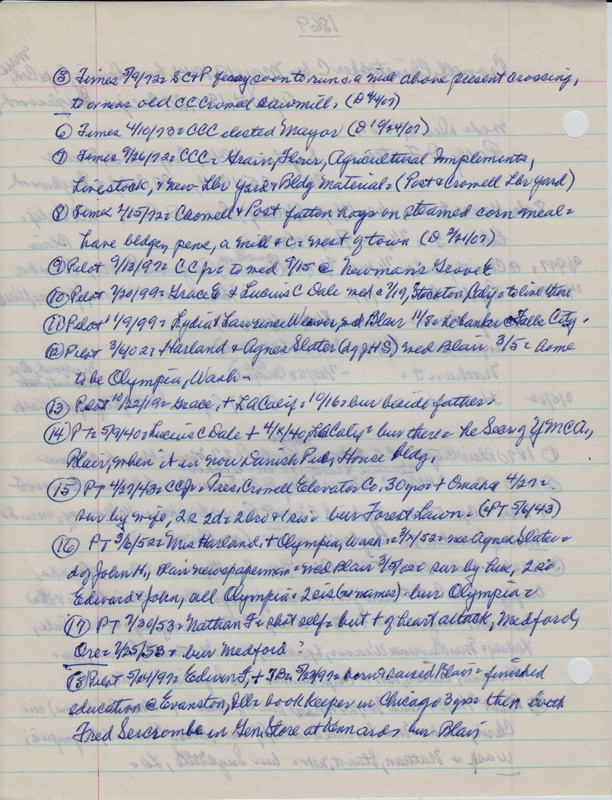 1869
(5) Times 5/9/72= SC+P ferry soon to run, a mill above present crossing,
to or near old CC Crowell sawmill= (D 4/4/67)
(6) Times 4/10/73= CCC elected Mayor (D 10/24/67)
(7) Times 9/26/72= CCC= Grain, Flour, Agricultural Implements,
Livestock, + new Lbr Yard + Bldg Material= (Post + Crowell Lbr yard)
(8) Times 2/15/72= Crowell + Post fatten hogs on steamed corn meal=
have bldgs, pens, a mill &c= west of town (D 3/21/67)
(9) Pilot 9/13/97= CC jr= to wed 9/15 @ Newman's Grove
(10) Pilot 7/20/99= Grace E + Lucius C Dale wed 7/19, Stockton, Calif= to live there
(11) Pilot 11/9/99= Lydia + Lawrence Weaver, wed Blair 11/8= he banker Falls City
(12) Pilot 3/6/02= Harland + Agnes Slater (dg JHS) wed Blair 3/5= home
to be Olympia, Wash=
(13) Pilot 10/22/19= Grace, + LA Calif= 10/16= bur beside father=
(14) PT= 5/9/40= Lucius C Dale + 4/ /40, LA Calif= bur there= He Sec of YMCA,
Blair, when it in now Danish Pub, House bldg.
(15) PT 4/29/43= CC Jr= Pres, Crowell Elevator Co, 30 yrs + Omaha 4/27=
sur by wife, 2s 2d= 2 bro + 1 sis= bur Forest Lawn= (+PT 5/6/43)
(16) PT 3/6/52= Mrs Harland, + Olympia, Wash,= 3/ /52= nee Agnes Slater=
d of John H, Blair newspaperman= wed Blair 3/5/02= sur by hus, 2 so
Edward + John, all Olympia= 2 sis (no names)= bur Olympia=
(17) PT 7/30/53= Nathan F= shot self= but + of heart attack, Medford,
Ore= 7/25/53= bur Medford?
(18) Pilot 5/24/97= Edwin F, + 5/23/97= born + raised Blair= finished
education @ Evanston, Ill= bookkeeper in Chicago 3 yrs= then with
Fred Sercombe in Gen Store at Kennards bur Blair